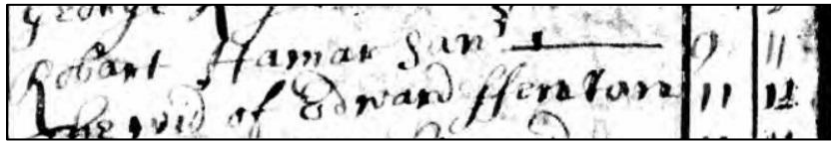 George
Robart Hamar Sanr 9 11
The wid of Edward ffentan 11 12